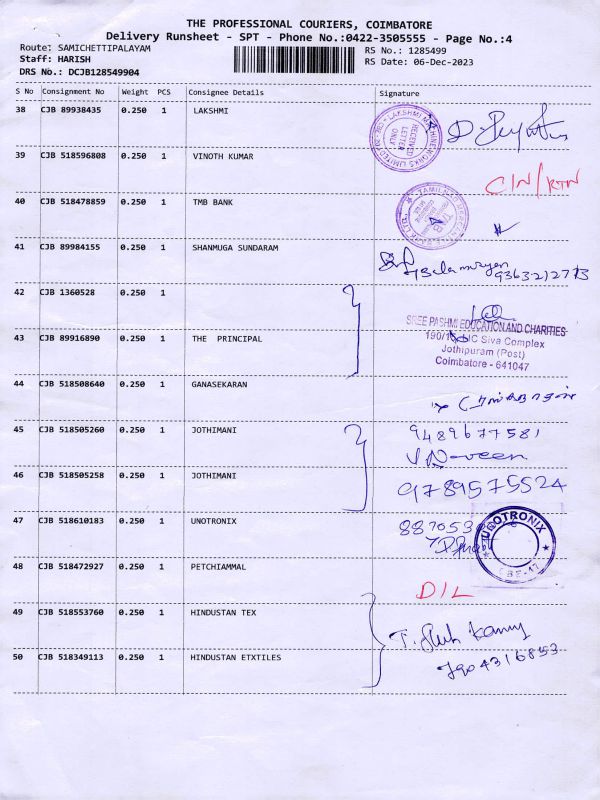 THE PROFESSIONAL COURIERS, COIMBATORE
Delivery Runsheet - SPT - Phone No.:0422-3505555 - Page No.:4
Route: SAMICHETTIPALAYAM
RS No.: 1285499
Staff: HARISH
RS Date: 06-Dec-2023
DRS No.: DCJB128549904
S No Consignment No Weight PCS Consignee Details Signature
38 CJB 89938435 0.250 1 LAKSHMI
LAKSHMI MACHINE WORKS LIMITED
RECEIVED
LETTER
ONLY
39 CJB 518596808 0.250 1 VINOTH KUMAR
C/N/RTN
40 CJB 518478859 0.250 1 TMB BANK
41 CJB 89984155 0.250 1 SHANMUGA SUNDARAM
9363212773
42 CJB 1360528 0.250 1
SREE PASHMI EDUCATION AND CHARITIES
43 CJB 89916890 0.250 1 THE PRINCIPAL
Siva Complex
Jothipuram (Post)
Coimbatore - 641047
44 CJB 518508640 0.250 1 GANASEKARAN
45 CJB 518505260 0.250 1 JOTHIMANI
9489677581
V Naveen
46 CJB 518505258 0.250 1 JOTHIMANI
9789575524
47 CJB 518610183 0.250 1 UNOTRONIX
UNOTRONIX
CBE-47
48 CJB 518472927 0.250 1 PETCHIAMMAL
D/L
49 CJB 518553760 0.250 1 HINDUSTAN TEX
50 CJB 518349113 0.250 1 HINDUSTAN ETXTILES
7904316853